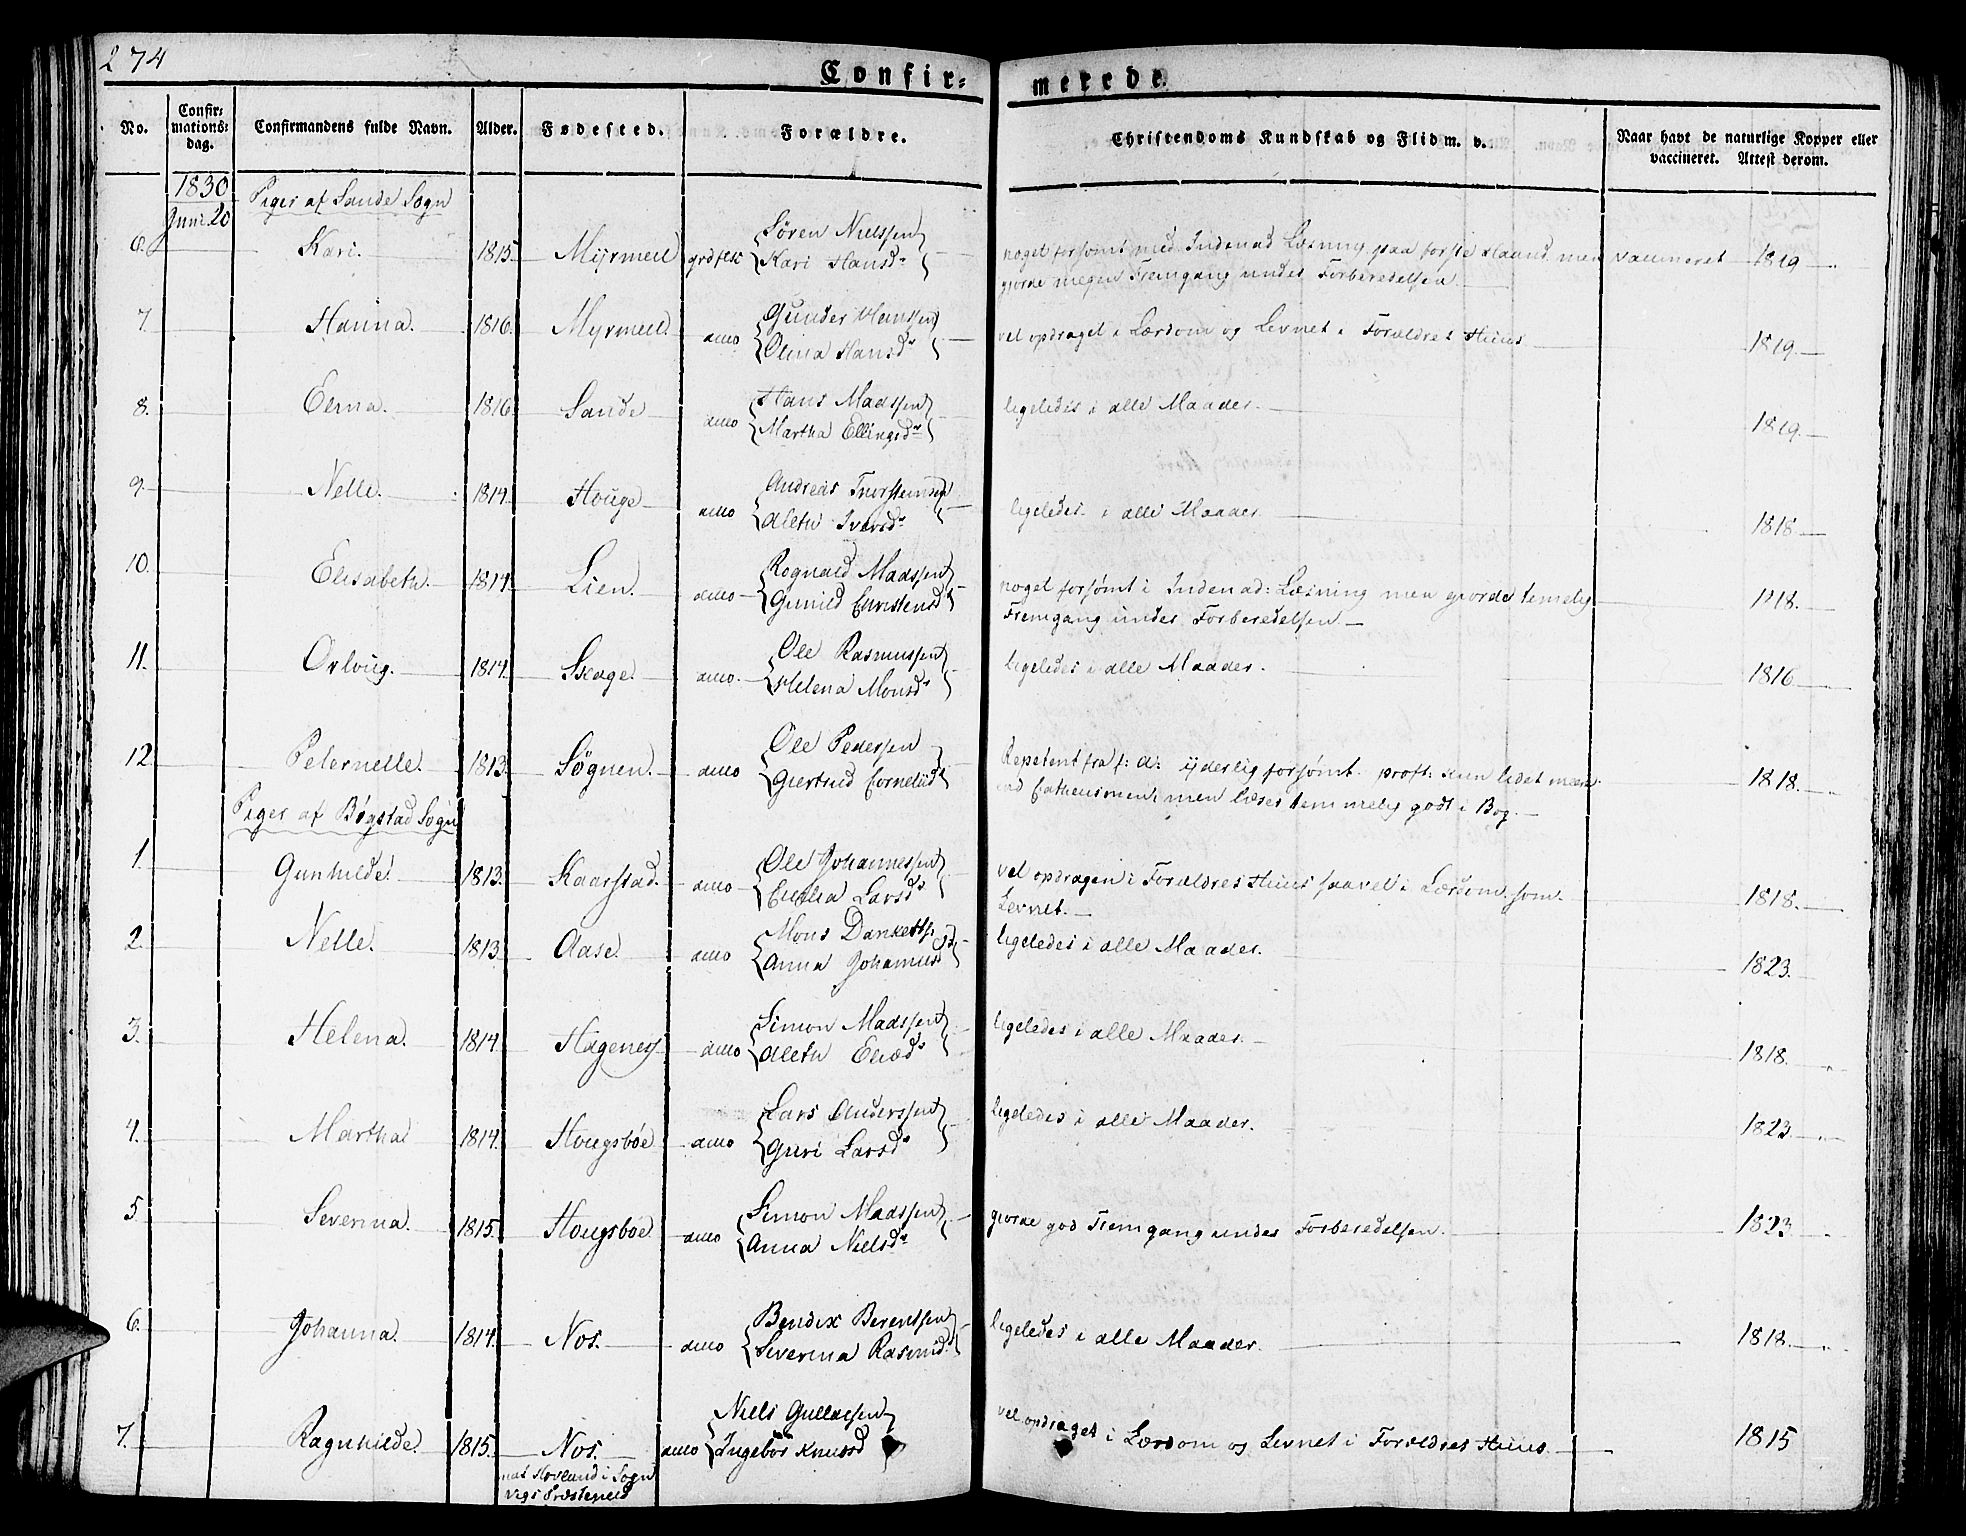 274
Confir= merede.
No. Confir=mations=dag. Confirmandens fulde Navn. Alder. Fødested. Forældre. Christendoms Kundskab og Flid m. v. Naar havt de naturlige Kopper eller vaccineret. Attest derom.
1830 Piger af Sande Sogn
Juni 20
6. Kari. 1815 Myrmell Søren Nielssen
Kari Hansdr
noget forsømt med Inden ad Læsning paa første Haand men vaccineret 1819
gjorde megen Fremgang under Forberedelsen
7 Hanna. 1816. Myrmell dito Gunder Hanssen
Olina Hansdr
vel opdraget i Lærdom og Levnet i Forældres Huus 1819.
8. Elena. 1816 Sande dito Hans Madssen
Martha Ellingsdr
ligeledes i alle Maader. 1819.
9. Nelle. 1814. Houge dito Andreas Thorstensen
Alethe Iversdr
ligeledes i alle Maader 1818
10. Elisabeth. 1814. Lien. dito Rognald Madssen
Gunild Christensdr
noget forsømt i Inden ad: Læsning men gjorde temelig 1818.
Fremgang under Forberedelsen.
11. Orloug. 1814. Skage. dito. Ole Rasmussen
Helena Monsdr
ligeledes i alle Maader. 1816
12 Peternelle. 1813. Søgnen. dito Ole Pedersen
Giertrud Corneliidr
Repetent fra f: A: yderlig forsømt. kun lidet
men læser temmelig godt i Bog. 1818.
Piger af Bøgstad Sogn
1. Gunhilde. 1813. Kaarstad. dito Ole Johannessen
Cecilia Larsdr
vel opdragen i Forældres Huus saavel i Lærdom som 1818.
Levnet.
2. Nelle. 1813. Aase. dito Mons Dankerts.
Anna Johannesdr
ligeledes i alle Maader. 1823.
3. Helena. 1814 Hageney dito Simon Madssen
Alethe Eliædr
ligeledes i alle Maader. 1818.
4. Martha 1814. Hougsbøe dito Lars Anderssen
Guri Larsdr
ligeledes i alle Maader. 1823.
5 Severina. 1815. Hougsbøe dito Simon Madssen
Anna Nielsdr
giorde god Fremgang under Forberedelsen. 1823.
6. Johanna. 1814. Nos. dito Bendix Berentsen
Severina Rasmusd.
ligeledes i alle Maader. 1818.
7. Ragnhilde. 1815. Nos. dito Niels Gullacsen
Ingebor Knudsd
vel opdraget i Lærdom og Levnet i Forældres Huus 1815
Hovland i Sogn